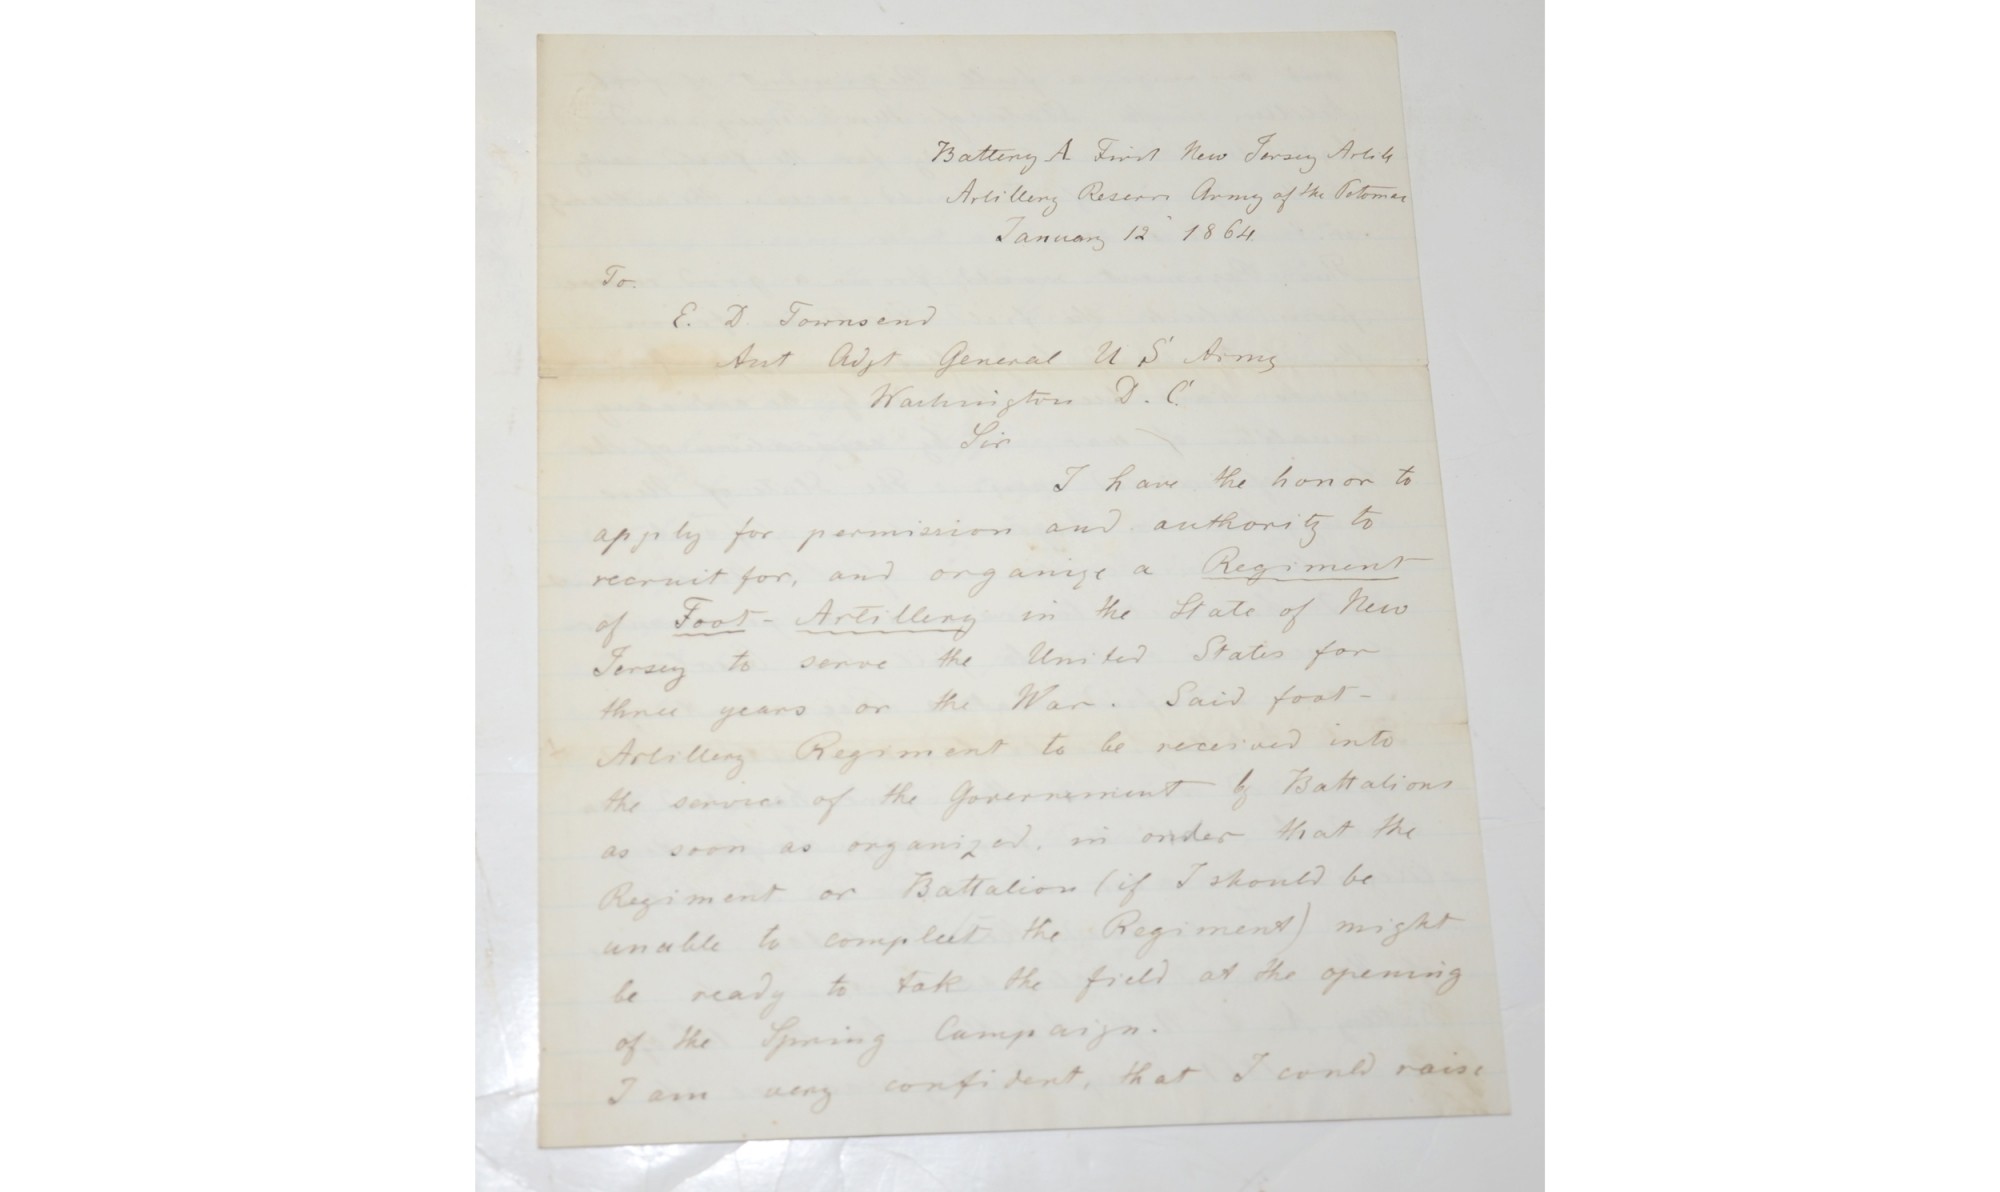 Battery A First New Jersey Artil
Artillery Reserve Army of the Potomac
January 12 1864.
To.
E. D. Townsend
Asst Adjt General U S Army
Washington D. C.
Sir
I have the honor to
apply for permission and authority to
recruit for, and organize a Regiment
of Foot-Artillery in the State of New
Jersey to serve the United States for
three years or the War. Said foot-
Artillery Regiment to be received into
the service of the Government by Battalions
as soon as organized, in order that the
Regiment or Battalion (if I should be
unable to compleet the Regiment) might
be ready to tak the field at the opening
of the Spring Campaign.
I am very confident, that I could raise